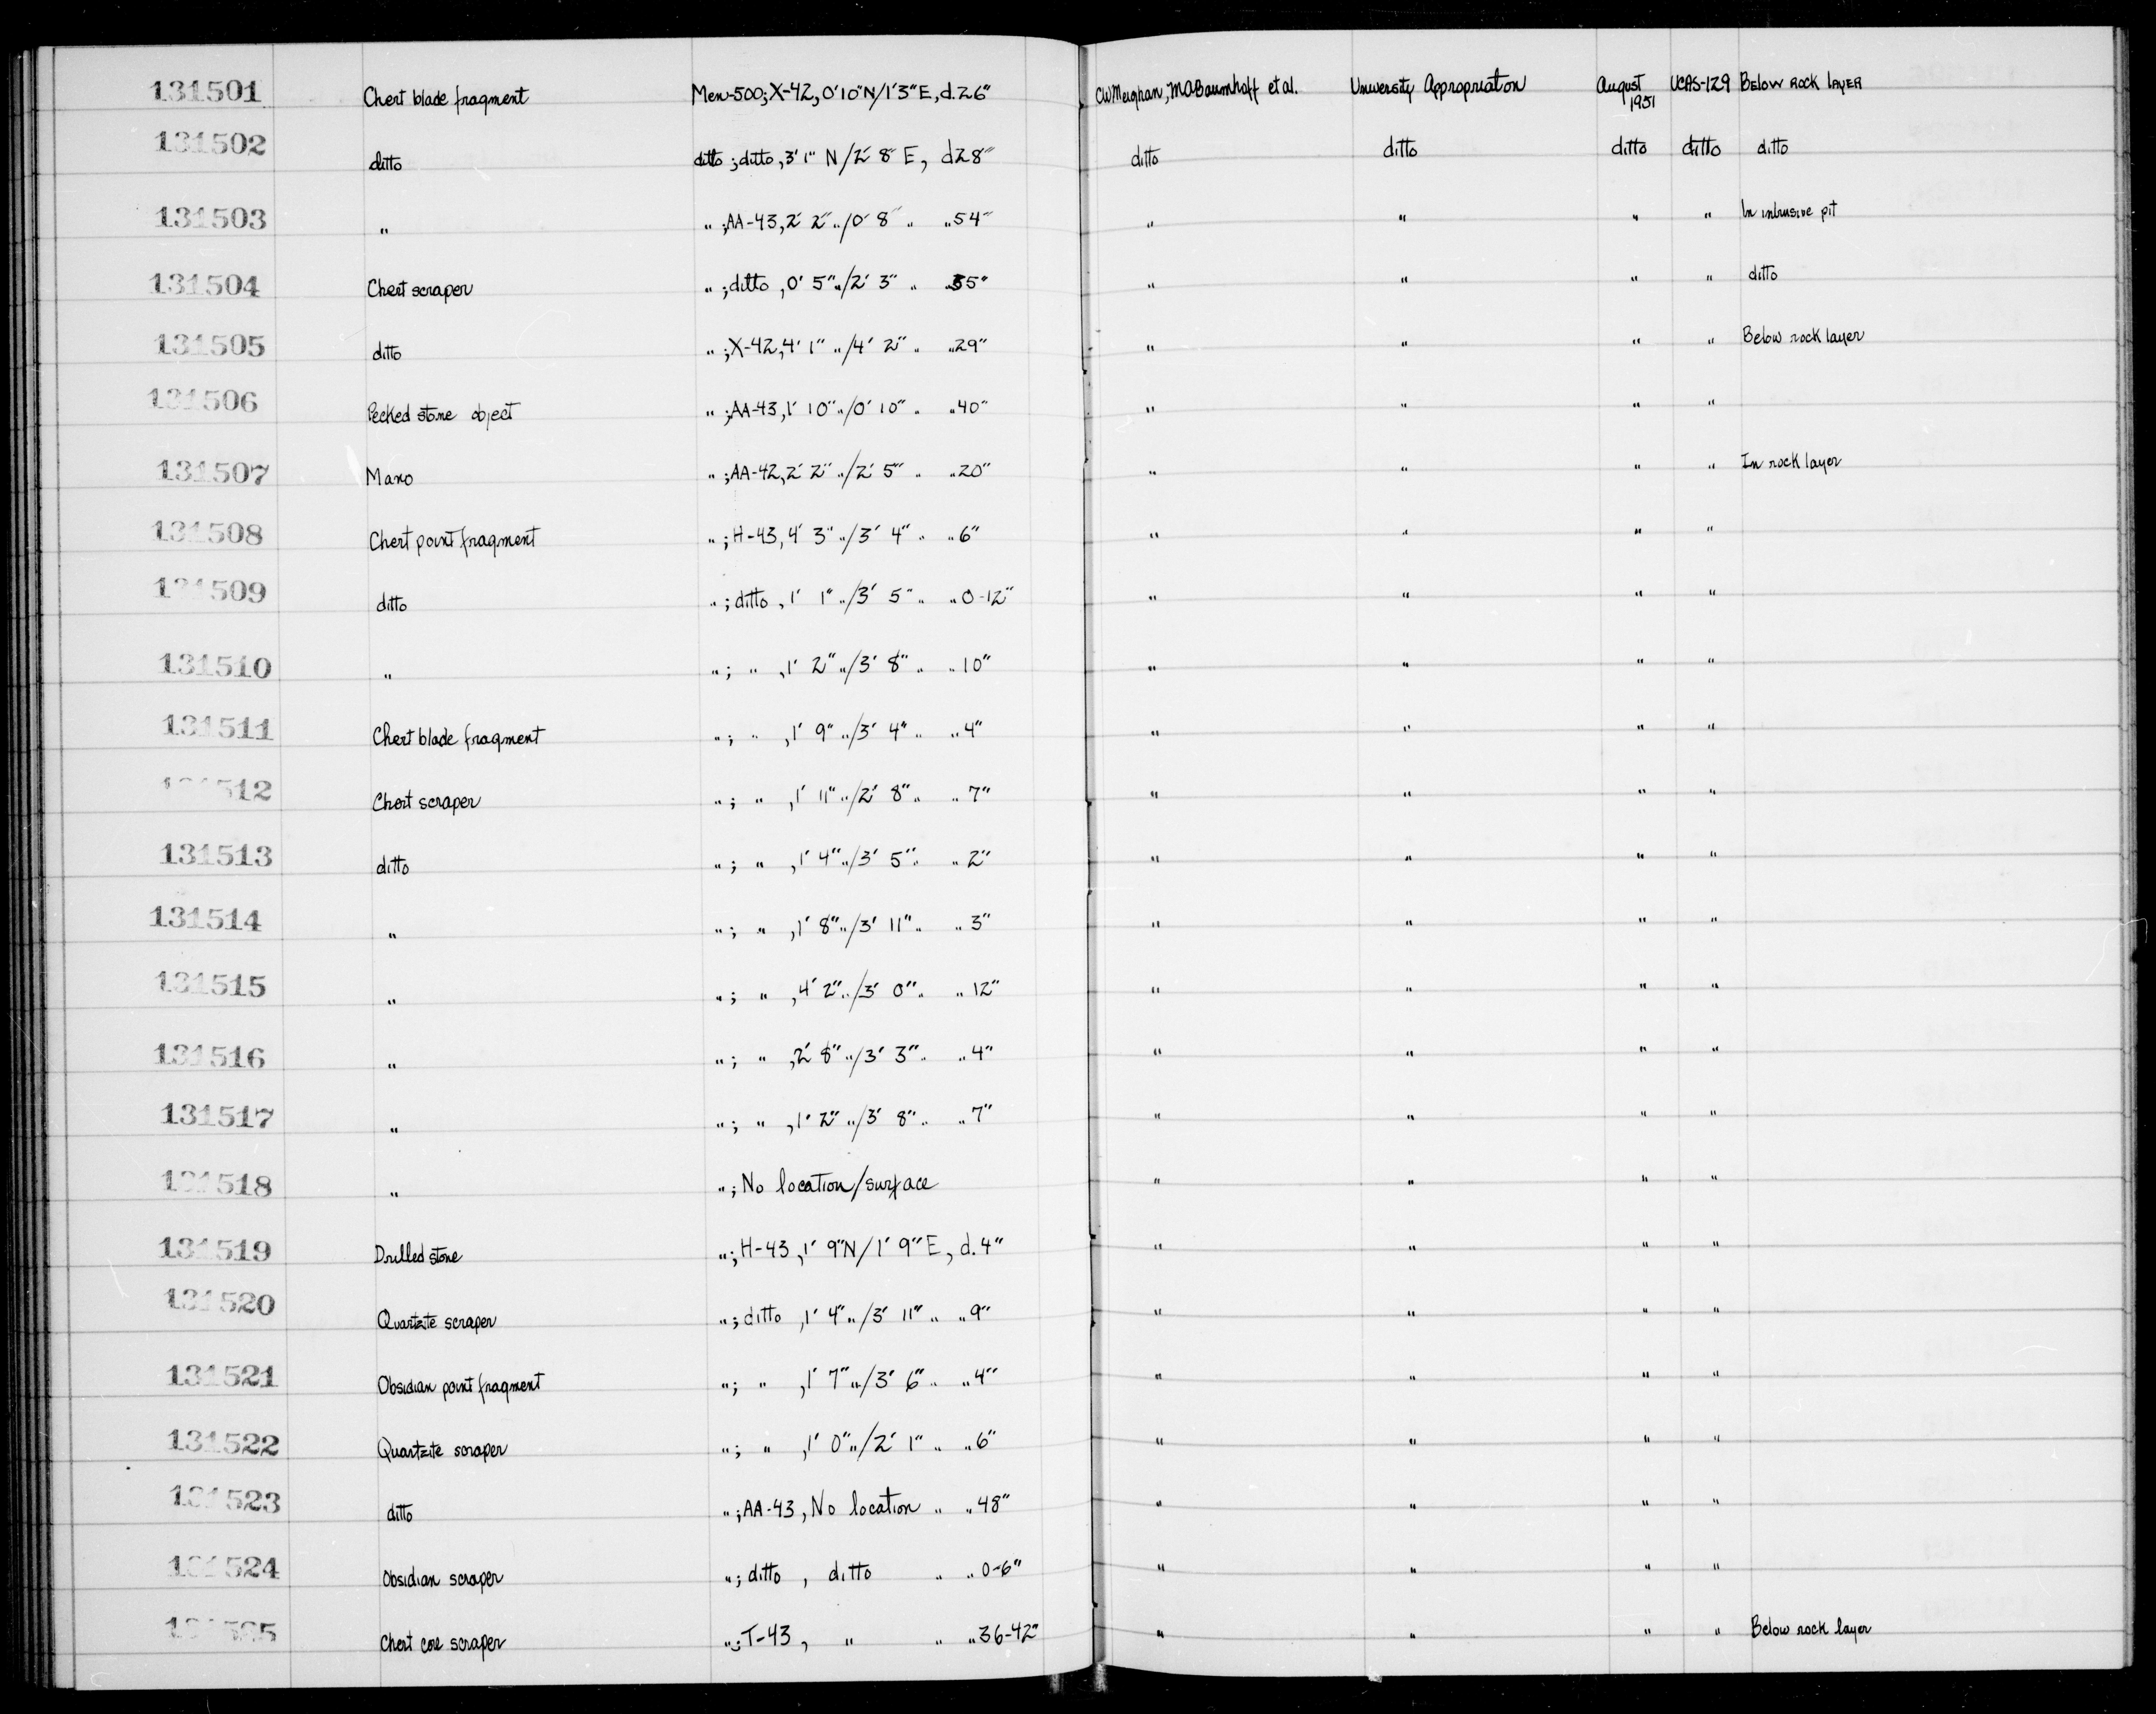 131501 Chert blade fragment Men-500; X-42, 0' 10" N/1' 3" E, d. 26" CW Meighan, MA Baumhoff et al. University Appropriation August 1951 UCAS-129 Below rock layer
131502 ditto ditto ; ditto, 3' 1" N/2' 8" E, d 28" ditto ditto ditto ditto ditto
131503 " " ; AA-43, 2' 2" "/0' 8" " " 54" " " " " In intrusive pit
131504 Chert scraper " ; ditto, 0' 5" "/2' 3" " " 35" " " " " ditto
131505 ditto " ; X-42, 4' 1" "/4' 2" " " 29" " " " " Below rock layer
131506 Pecked stone object " ; AA-43, 1' 10" "/0' 10" " " 40" " " " "
131507 Mano " ; AA-42, 2' 2" "/2' 5" " " 20" " " " " In rock layer
131508 Chert point fragment " ; H-43, 4' 3" "/3' 4" " " 6" " " " "
131509 ditto " ; ditto, 1' 1" "/3' 5" " " 0-12" " " " "
131510 " " ; " , 1' 2" "/3' 8" " " 10" " " " "
131511 Chert blade fragment " ; " , 1' 9" "/3' 4" " " 4" " " " "
131512 Chert scraper " ; " , 1' 11" "/2' 8" " " 7" " " " "
131513 ditto " ; " , 1' 4" "/3' 5" " " 2" " " " "
131514 " " ; " , 1' 8" "/3' 11" " " 3" " " " "
131515 " " ; " , 4' 2" "/3' 0" " " 12" " " " "
131516 " " ; " , 2' 8" "/3' 3" " " 4" " " " "
131517 " " ; " , 1' 2" "/3' 8" " " 7" " " " "
131518 " " ; No location/surface " " " "
131519 Drilled stone " ; H-43, 1' 9" N/1' 9" E, d. 4" " " " "
131520 Quartzite scraper " ; ditto , 1' 4" "/3' 11" " " 9" " " " "
131521 Obsidian point fragment " ; " , 1' 7" "/3' 6" " " 4" " " " "
131522 Quartzite scraper " ; " , 1' 0" "/2' 1" " " 6" " " " "
131523 ditto " ; AA-43, No location " " 48" " " " "
131524 Obsidian scraper " ; ditto , ditto " " 0-6" " " " "
131525 Chert core scraper " ; T-43, " " " 36-42" " " " " Below rock layer